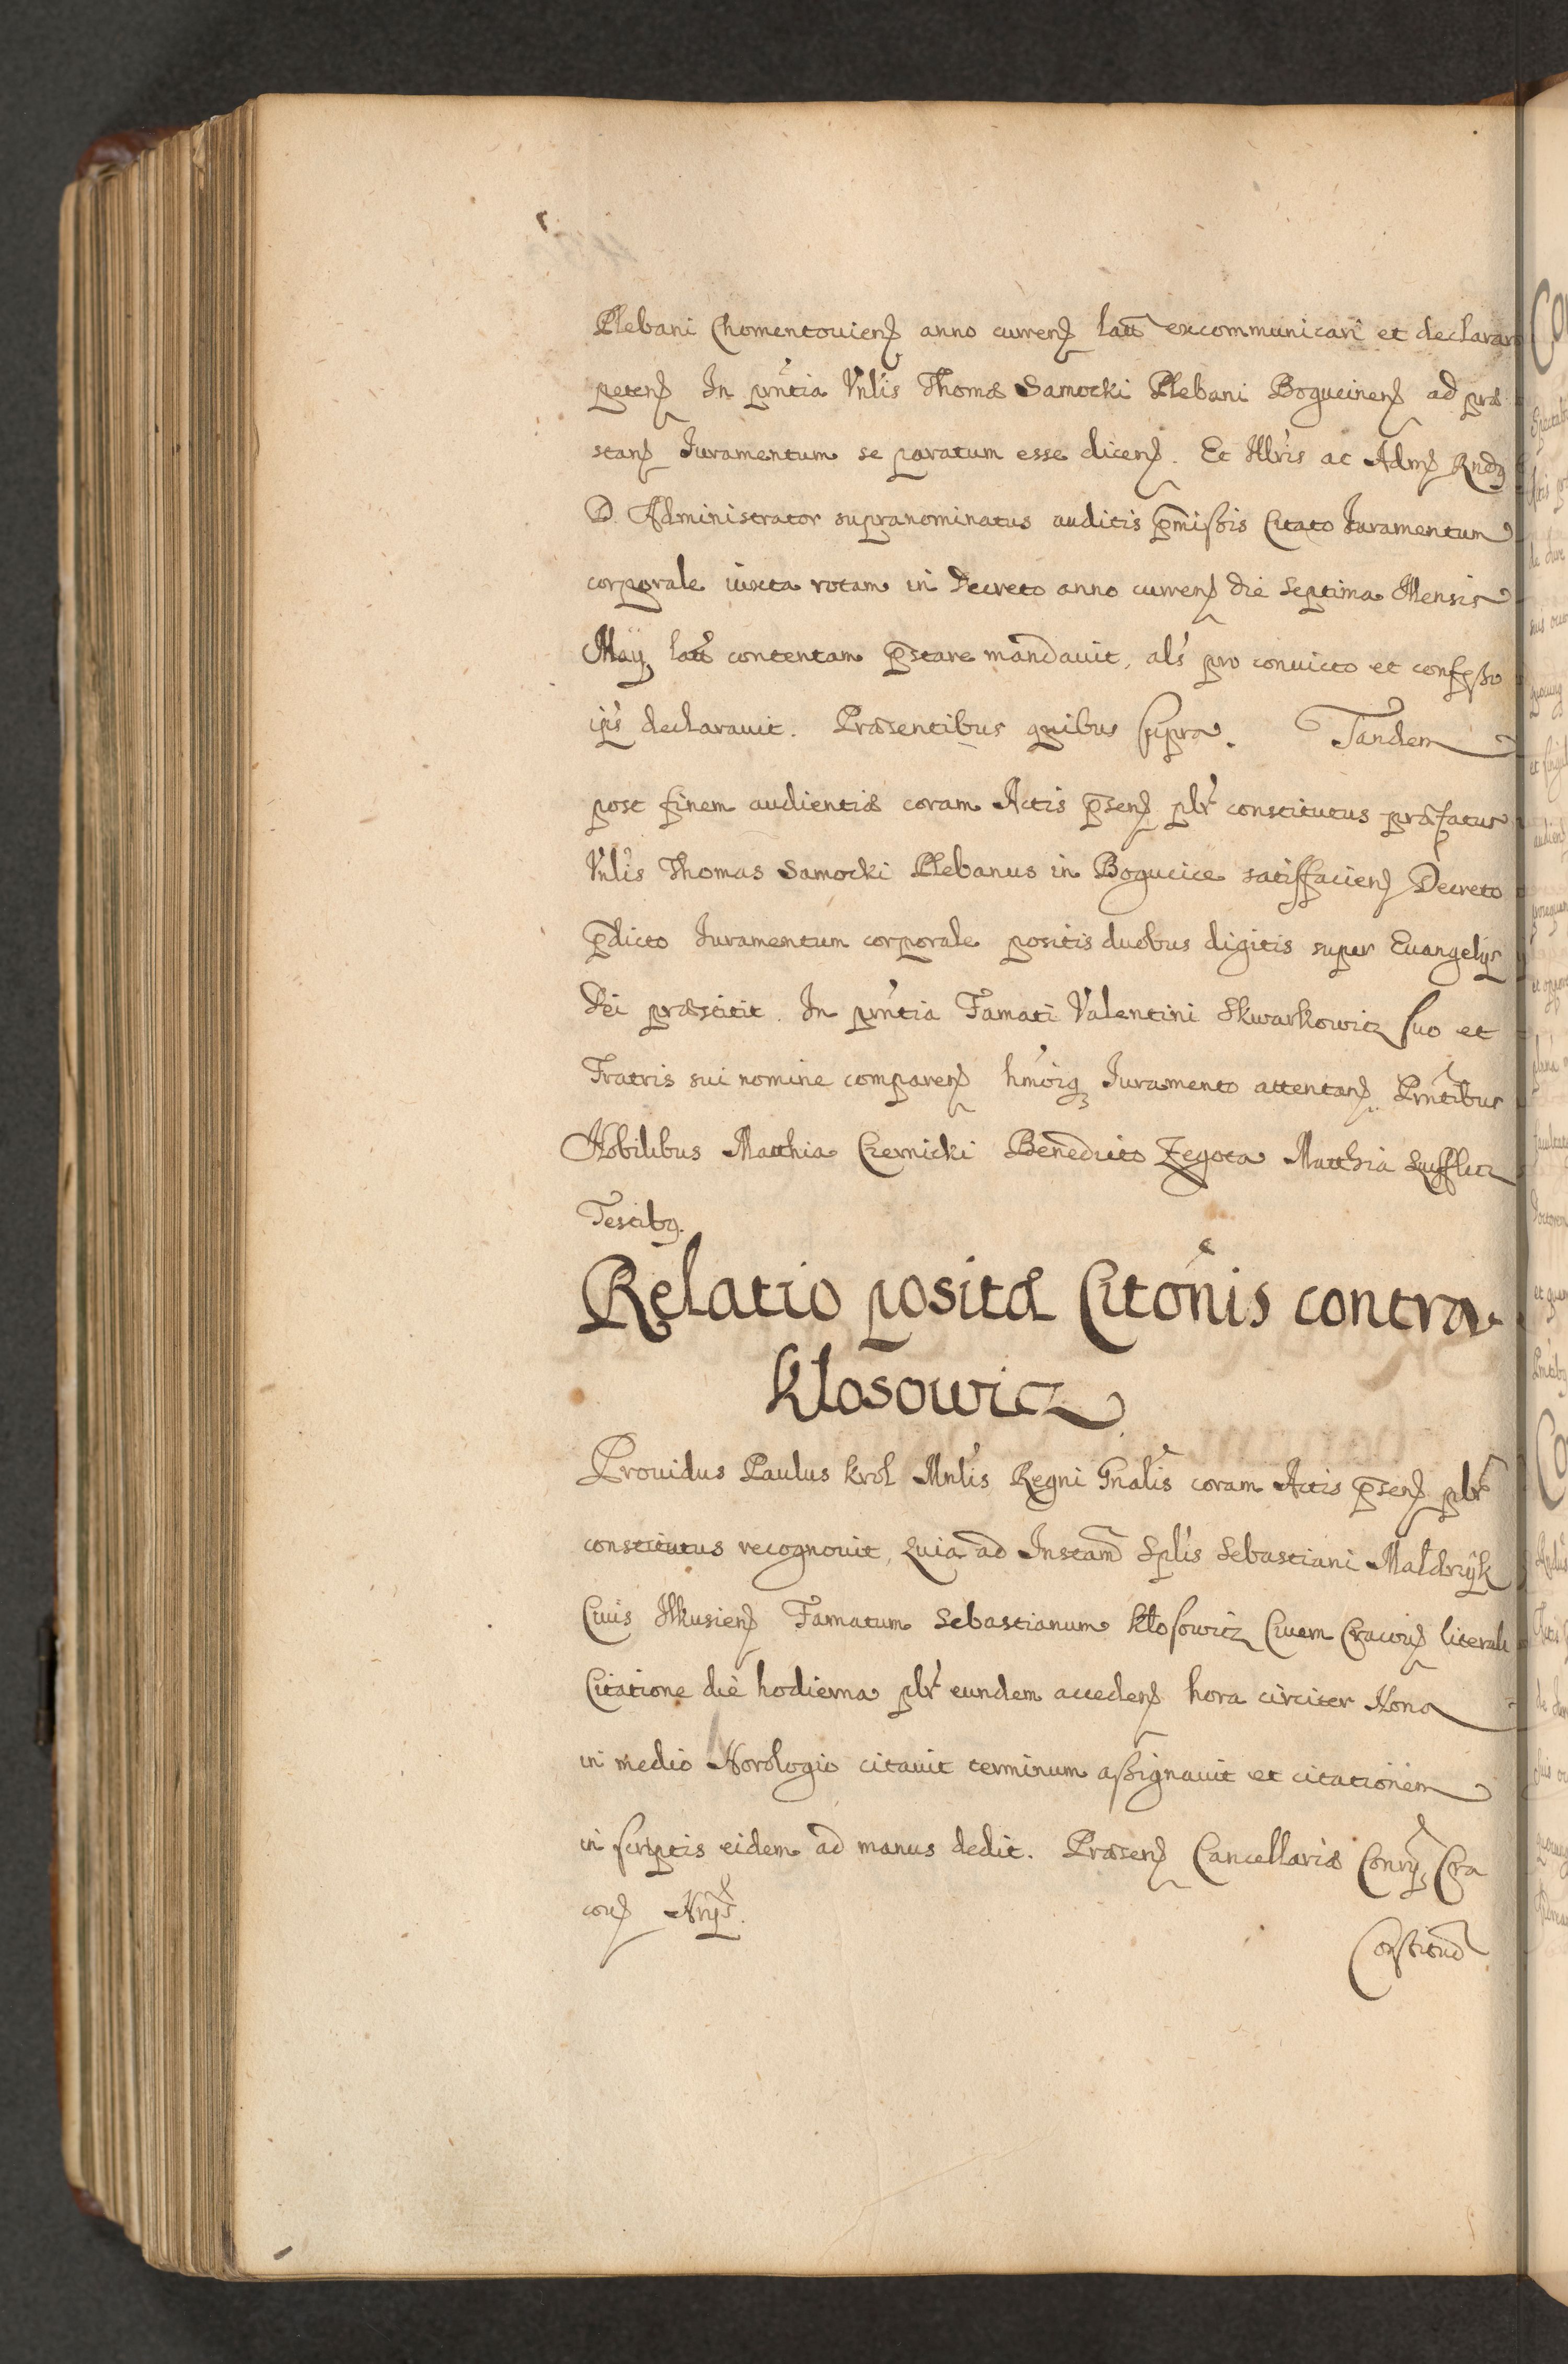 Plebani Chomentouien̄ anno curren̄ latū excommunicari et declarari
peten̄ In pñtia Vnlis Thomæ Samocki Plebani Bogucinen̄ ad præ
stan̄ Iuramentum se paratum esse dicen̄. Et Illris ac Adm̄ Rnd9
D. Administrator supranominatus auditis p̄missis Citato Iuramentum
corporale iuxta rotam in Decreto anno curren̄ die septima Mensis
Maÿ latū contentam p̄stare mandauit, als pro conuicto et confesso
ips declarauit. Præsentibus quibus supra. Tandem
post finem audientiæ coram Actis p̄sen̄ plr constitutus præfatus
Vnlis Thomas Samocki Plebanus in Bogucice satisfacien̄ Decreto
p̄dicto Iuramentum corporale positis duobus digitis super Euangelijs
Dei præstitit. In pñtia Famati Valentini Skwarkowicz suo et
Fratris sui nomine comparen̄ hmoiq3 Iuramento attentan̄. Pñtibus
Nobilibus Matthia Czernicki Benedicto Zegota Matthia
Testib9.
Relatio positæ Citõnis contra
Klosowicz
Prouidus Paulus Krol Mnlis Regni Gnalis coram Actis p̄sen̄ plr
constitutus recognouit, Quia ad Instam̄ Splis Sebastiani Małdrzÿk
Ciuis Ilkusien̄ Famatum Sebastianum Kłosowicz Ciuem Cracouien̄ literali
Citatione die hodierna plr eundem acceden̄ hora circiter Nona
in medio Horologio citauit terminum assignauit et citationem
in scriptis eidem ad manus dedit. Præsen̄ Cancellariæ Conrÿ Cra
couien̄ Nrÿs.